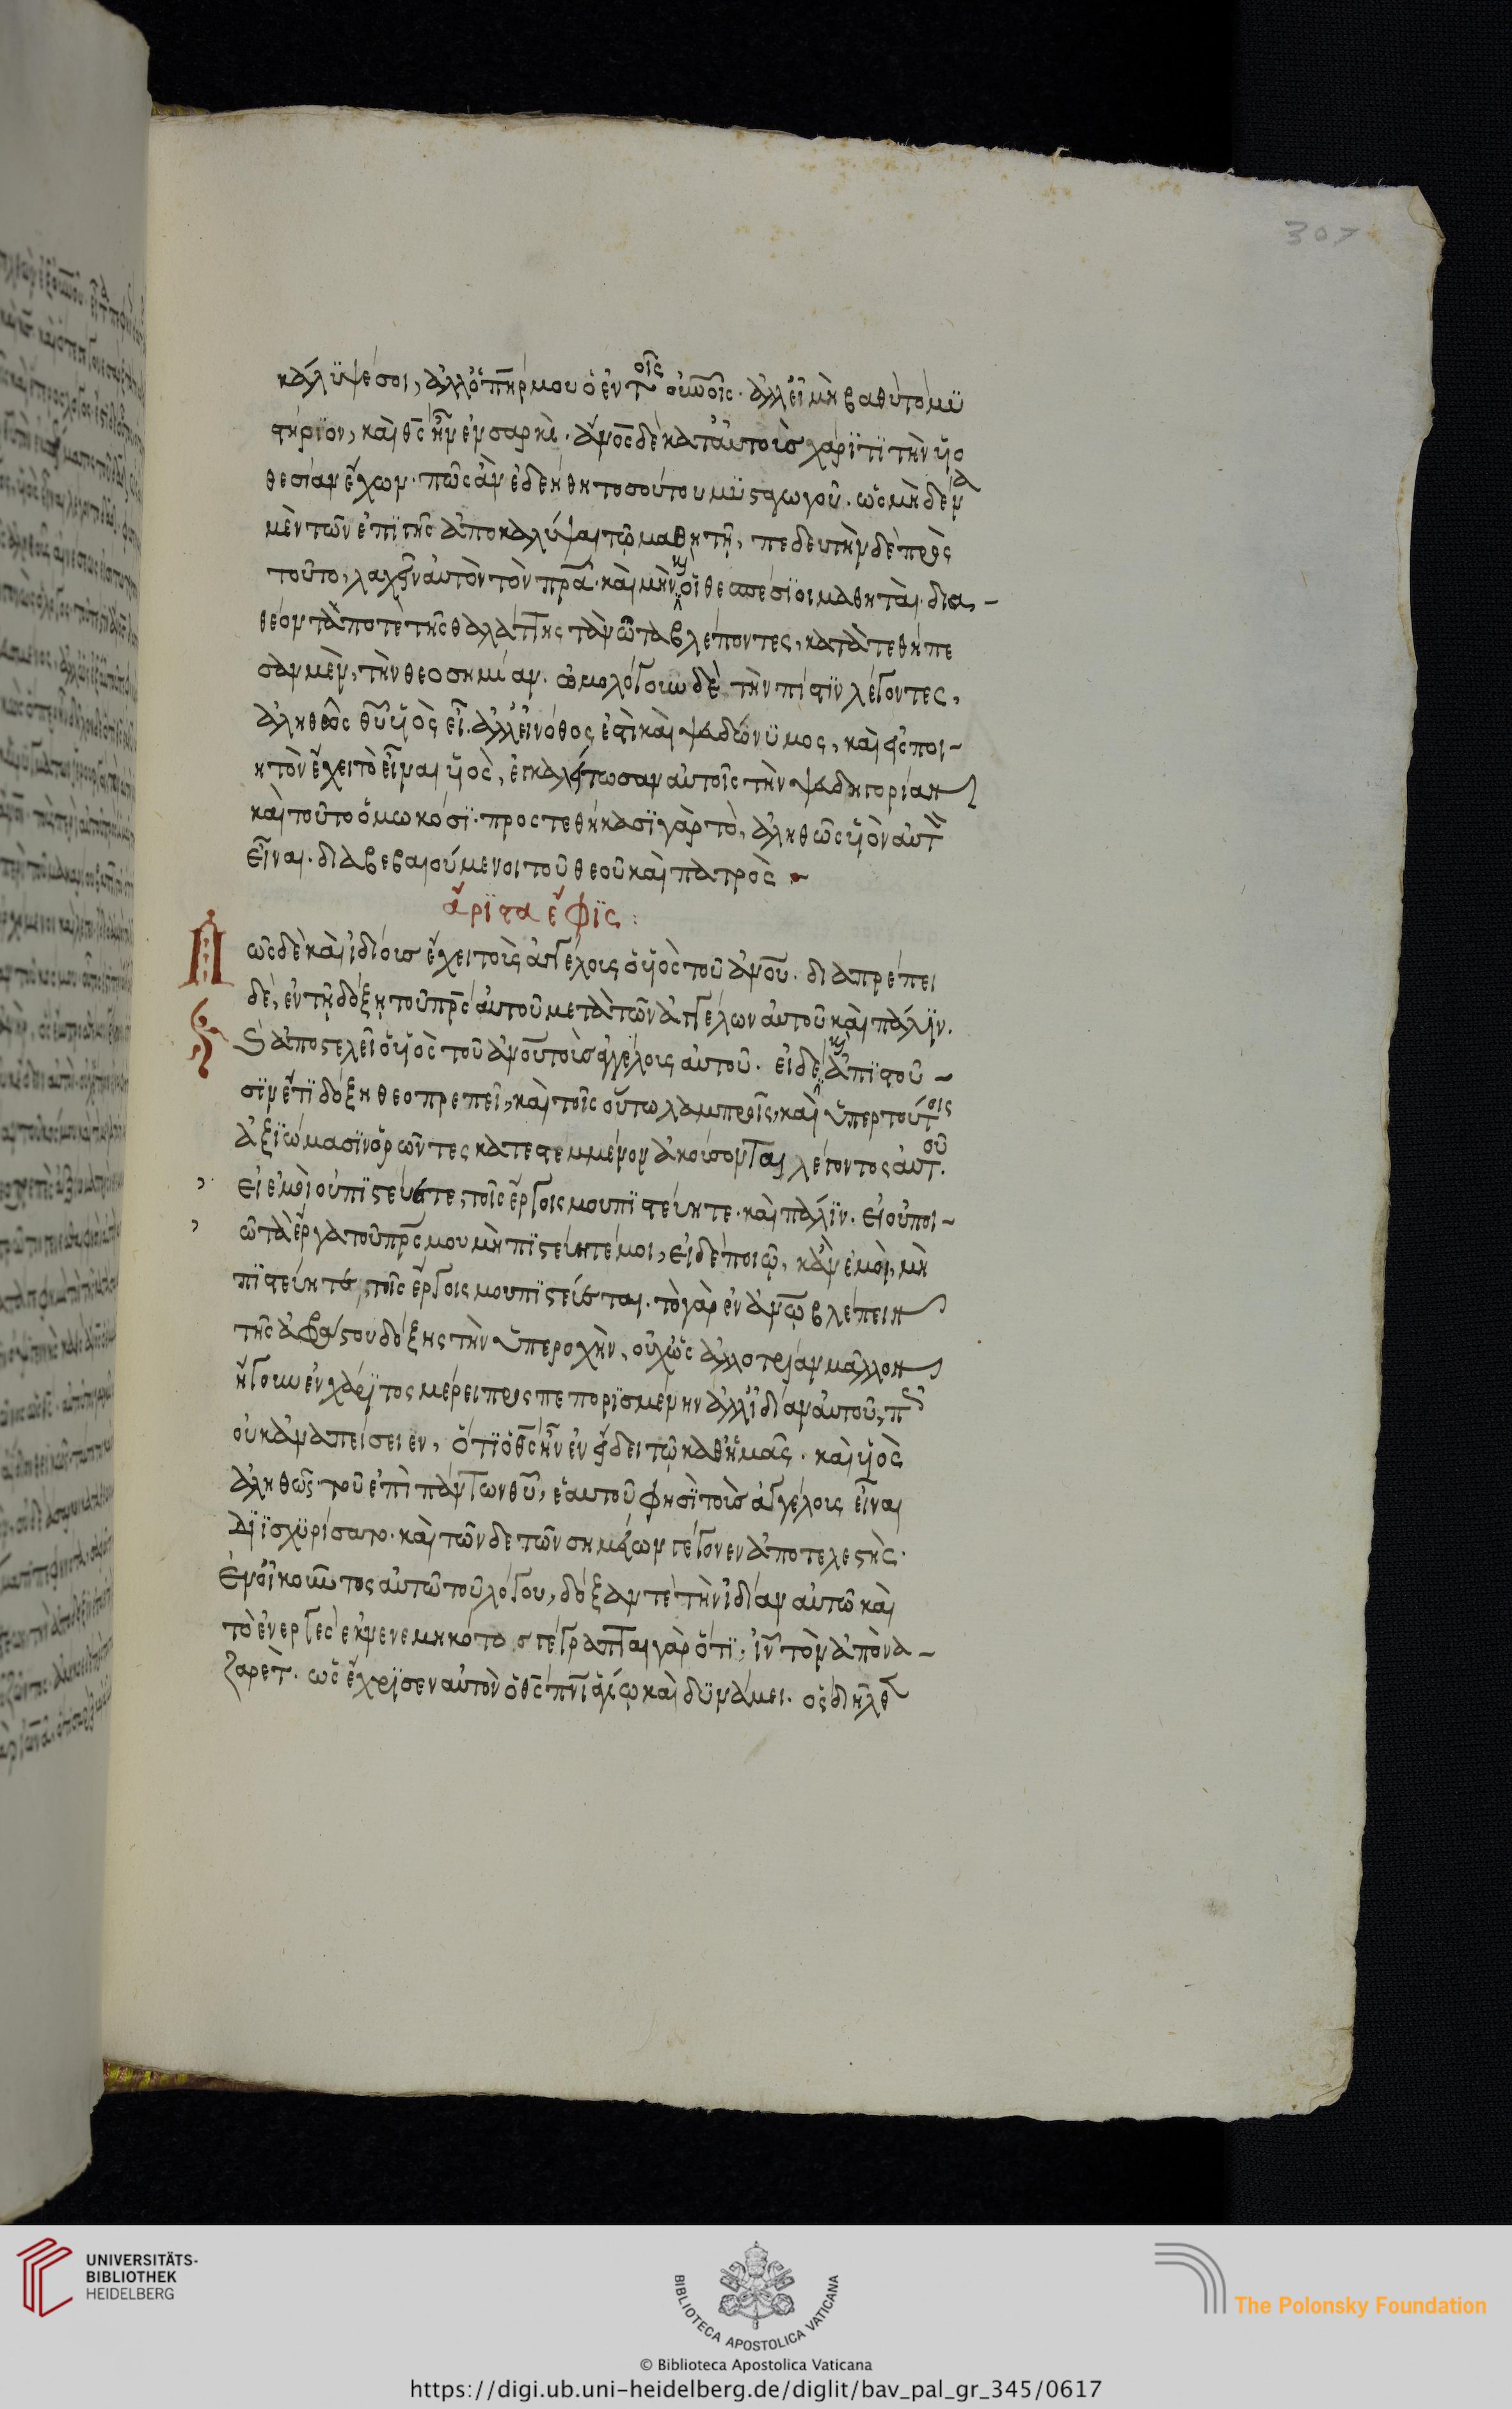 307
κάλυψέ σοι, ἀλλ' ὁ πηρ μου ὁ ἐν τοῖς οὐνοῖς. ἀλλ' εἰ μὴ βαθὺ τὸ μυ
στήριον, καὶ θς ἦν ἐν σαρκὶ. ἄνος δὲ κατ' αὐτοὺς χάριτι τὴν υἱο
θεσίαν ἔχων. πῶς ἂν ἐδεήθη τοσούτου μυσταγωγοῦ. ὡς μηδένα
μὲν τῶν ἐπὶ γῆς ἀποκαλύψαι τῷ μαθητῇ, παιδευτὴν δὲ πρὸς
τοῦτο, λαχεῖν αὐτὸν τὸν πρα. καὶ μὴν καὶ οἱ θεσπέσιοι μαθηταὶ. δια
θέοντά ποτε τῆς θαλάττης τὰ νῶτα βλέποντες, κατατεθήπε
σαν μὲν, τὴν θεοσημίαν. ὡμολόγουν δὲ τὴν πίστιν λέγοντες,
ἀληθῶς θυ υἱὸς εἶ. ἀλλ' εἰ νόθος ἐστὶ καὶ ψευδώνυμος, καὶ εἰσποι
ητὸν ἔχει τὸ εἶναι υἱὸς, ἐγκαλείτωσαν αὐτοῖς τὴν ψευδηγορίαν
καὶ τοῦτο ὀμωμοκόσι. προστεθήκασι γὰρ τὸ, ἀληθῶς υἱὸν αὐτὸν
εἶναι. διαβεβαιούμενοι τοῦ θεοῦ καὶ πατρὸς
ἄριστα ἔφις:
Πῶς δὲ καὶ ἰδίους ἔχει τοὺς ἀγγέλους ὁ υἱὸς τοῦ ἀνου. διαπρέπει
δὲ, ἐν τῇ δόξῃ τοῦ πρς αὐτοῦ μετὰ τῶν ἀγγέλων αὐτοῦ καὶ πάλιν.
ἀποστελεῖ ὁ υἱὸς τοῦ ἀνου τοὺς ἀγγέλους αὐτοῦ. εἰ δὲ καὶ ἀπιστοῦ
σιν ἔτι δόξῃ θεοπρεπεῖ, καὶ τοῖς οὕτω λαμπροῖς, καὶ ὑπερτάτοις
ἀξιώμασιν ὁρῶντες κατεστεμμένον ἀκούσονται λέγοντος αὐτοῦ.
Εἰ ἐμοὶ οὐ πιστεύετε, τοῖς ἔργοις μου πιστεύητε. καὶ πάλιν. Εἰ οὐ ποι
ῶ τὰ ἔργα τοῦ πρς μου μὴ πιστεύητέ μοι, εἰ δὲ ποιῶ, κἂν ἐμοὶ, μὴ
πιστεύητέ, τοῖς ἔργοις μου πιστεύσται. τὸ γὰρ ἐν ἀνῳ βλέπειν
τῆς ἀφράστου δόξης τὴν ὑπεροχὴν, οὐχ ὡς ἀλλοτρίαν μᾶλλον
ἤγουν ἐν χάριτος μέρει προσπεπορισμένην ἀλλ' ἰδίαν αὐτοῦ,
οὐκ ἀναπείσειεν, ὅτι ὁ θς ἦν ἐν εἴδει τῷ καθ' ἡμᾶς. καὶ υἱὸς
ἀληθῶς τοῦ ἐπὶ πάντων θυ, ἑαυτοῦ φησὶ τοὺς ἀγγέλους εἶναι
διϊσχυρίσατο. καὶ τῶνδε τῶν σημείων γέγονεν ἀποτελεστὴς.
Ἐνοικοῦντος αὐτῶ τοῦ λόγου, δόξαν τὲ τὴν ἰδίαν αὐτῶ καὶ
τὸ ἐνεργὲς ἐκνενεμηκότος γέγραπται γὰρ ὅτι, ἰν τὸν ἀπὸ να
ζαρὲτ. ὡς ἔχρισεν αὐτὸν ὁ θς πνι ἁγίῳ καὶ δυνάμει. ὃς διῆλθεν
UNIVERSITÄTS-
BIBLIOTHEK
HEIDELBERG
BIBLIOTECA APOSTOLICA VATICANA
The Polonsky Foundation
© Biblioteca Apostolica Vaticana
https://digi.ub.uni-heidelberg.de/diglit/bav_pal_gr_345/0617